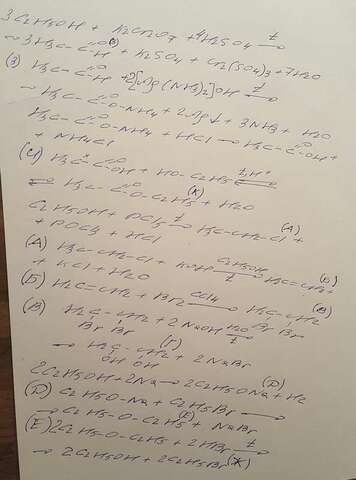 3C2H5OH + K2Cr2O7 + 4H2SO4 t→
→ 3H3C-C=O-H (З) + K2SO4 + Cr2(SO4)3 + 7H2O
(З) H3C-C=O-H + 2[Ag(NH3)2]OH t→
→ H3C-C=O-O-NH4 + 2Ag↓ + 3NH3 + H2O
H3C-C=O-O-NH4 + HCl → H3C-C=O-OH +
+ NH4Cl
(И) H3C-C=O-OH + HO-C2H5 t, H+ ⇌
⇌ H3C-C=O-O-C2H5 (К) + H2O
C2H5OH + PCl5 t→ H3C-CH2-Cl (А) +
+ POCl3 + HCl
(А) H3C-CH2-Cl + KOH C2H5OH t→ H2C=CH2 (Б) +
+ KCl + H2O
(Б) H2C=CH2 + Br2 CCl4→ H2C-CH2 (В)
Br Br
(В) H2C-CH2 + 2NaOH H2O t→
Br Br
→ H2C-CH2 (Г) + 2NaBr
OH OH
2C2H5OH + 2Na → 2C2H5ONa (Д) + H2
(Д) C2H5-O-Na + C2H5Br →
→ C2H5-O-C2H5 (Е) + NaBr
(Е) 2C2H5-O-C2H5 + 2HBr t→
→ 2C2H5OH + 2C2H5Br (Ж)